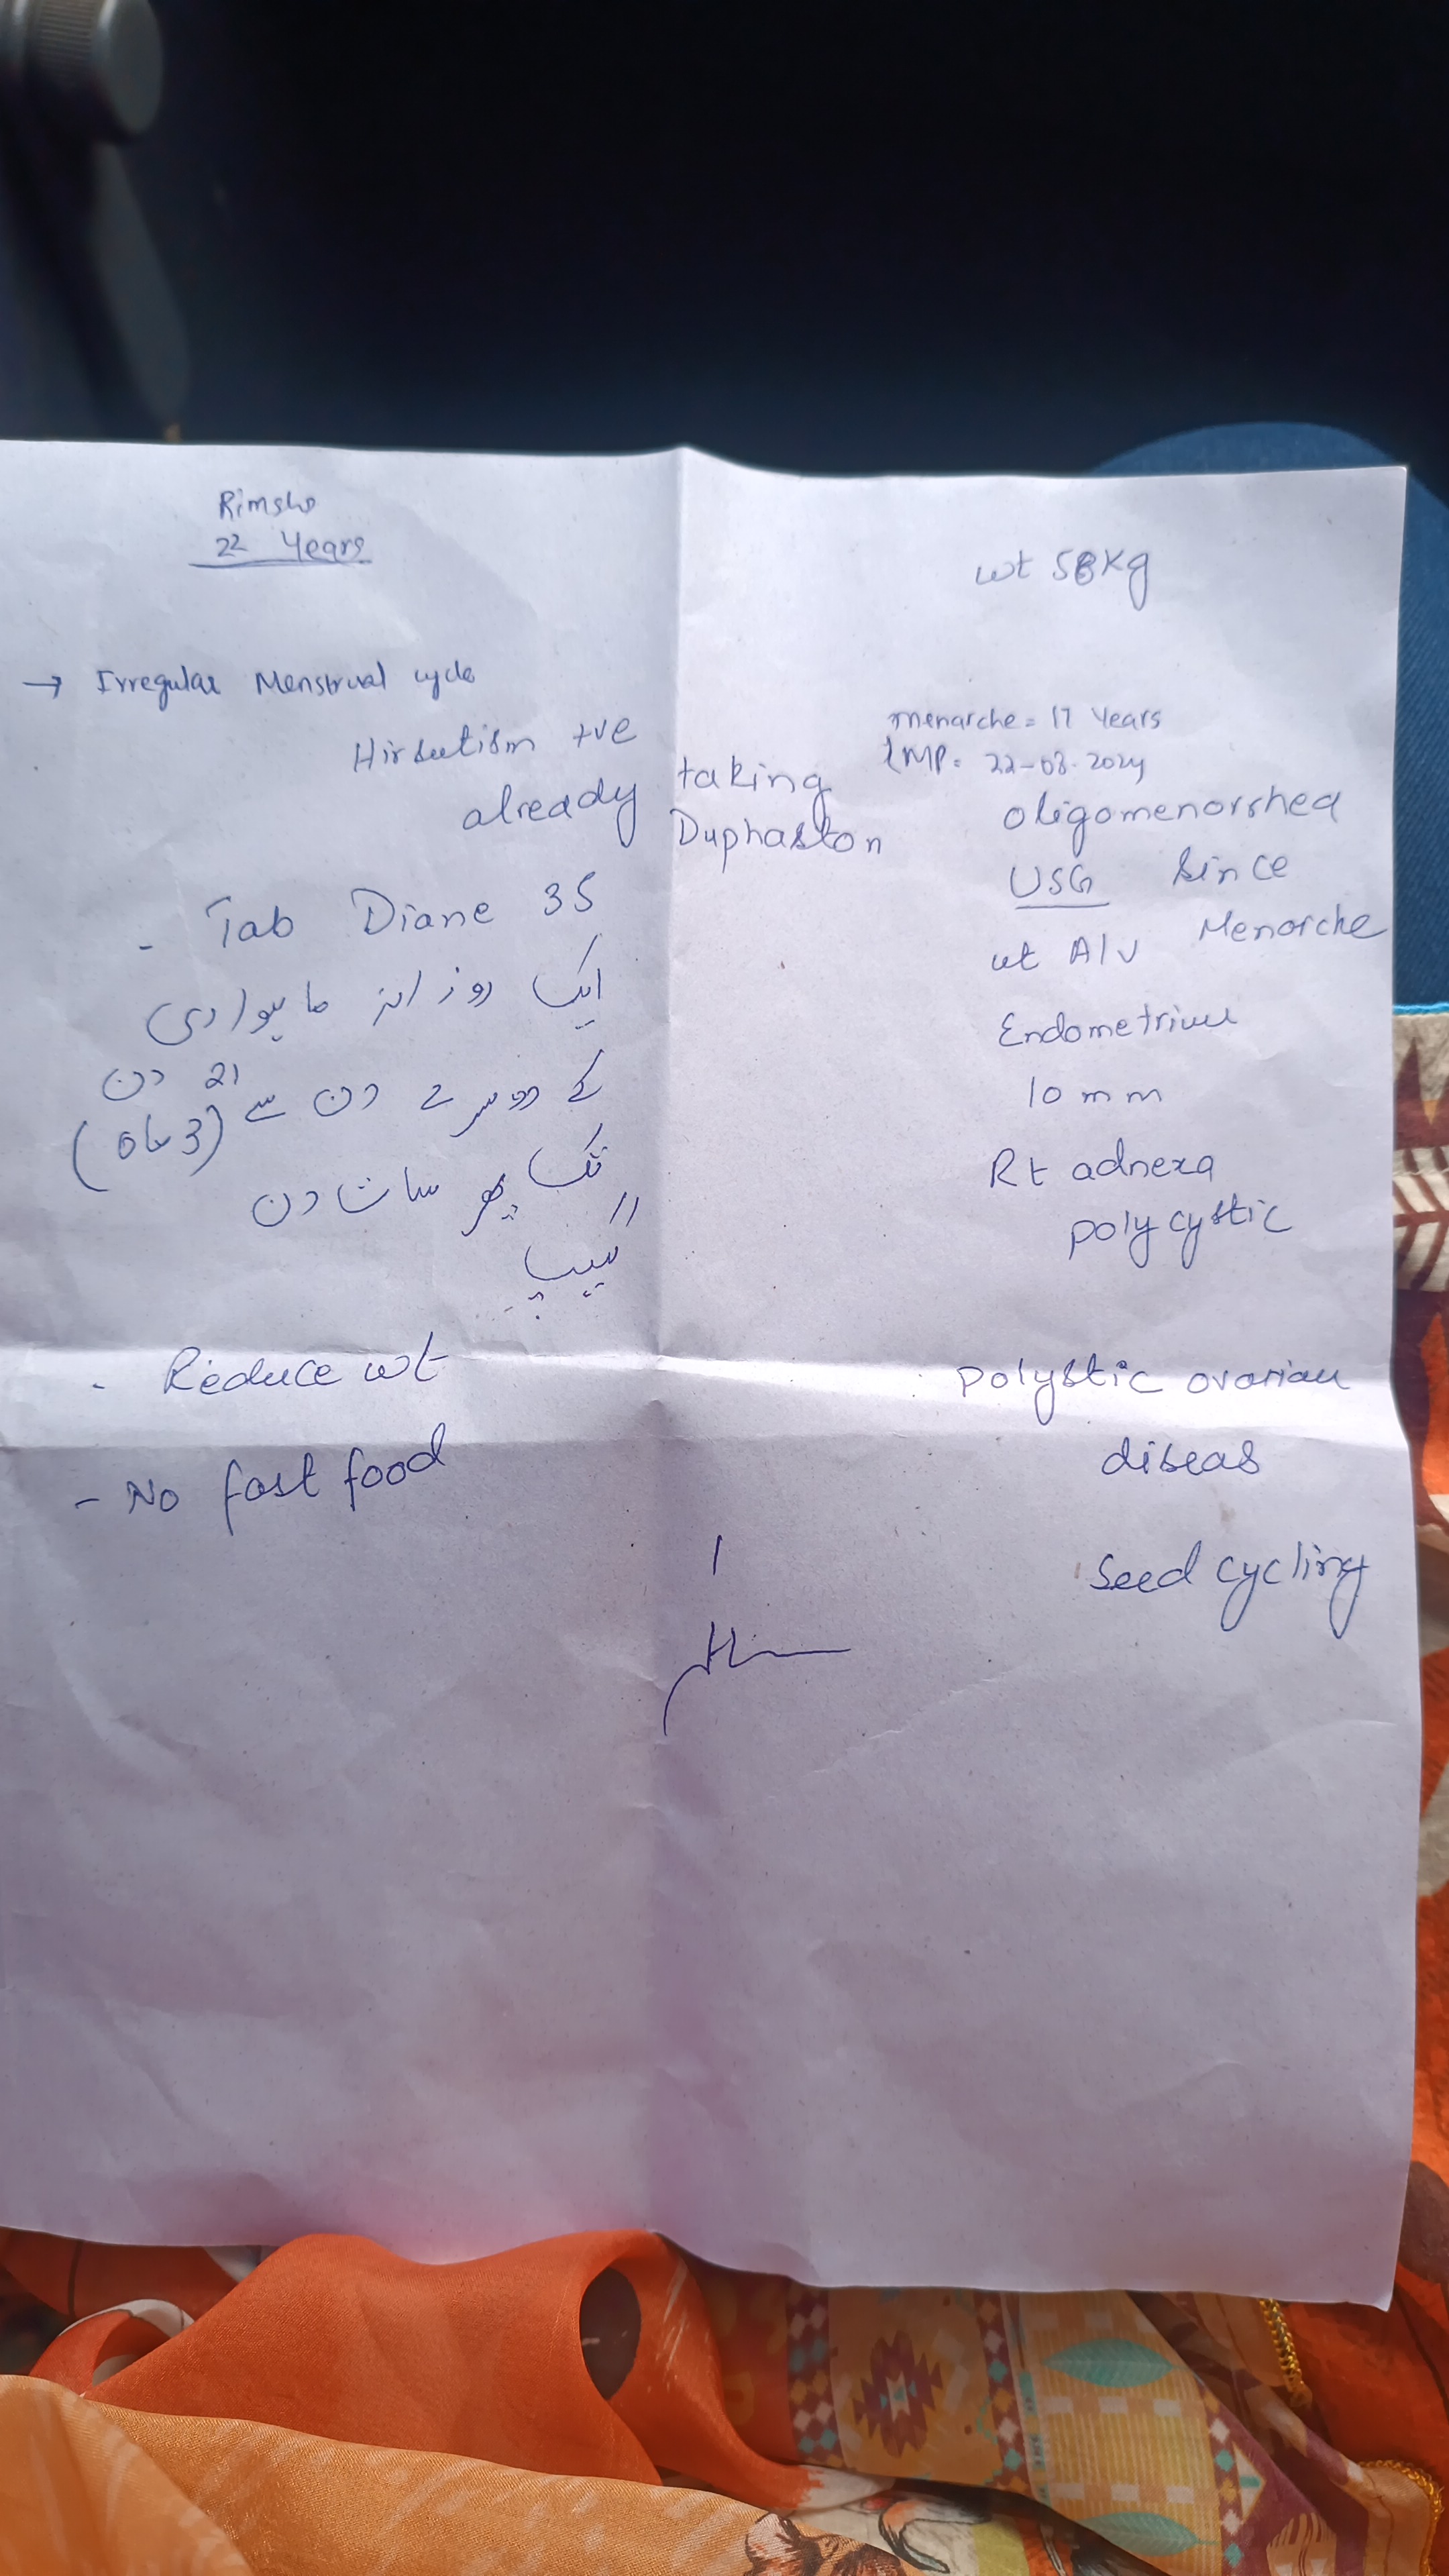 Rimsha
22 Years
wt 58kg
→ Irregular Menstrual cycle
Hirsutism +ve
already taking
Duphaston
- Tab Diane 35
ایک روزانہ ماہواری
کے دوسرے دن سے 21 دن
تک پھر سات دن (3 ماہ)
گیپ
- Reduce wt
- No fast food
menarche = 17 Years
LMP = 22-08-2024
oligomenorrhea
USG since
Menarche
ut A/V
Endometrium
10 mm
Rt adnexa
polycystic
polystic ovarian
diseas
seed cycling